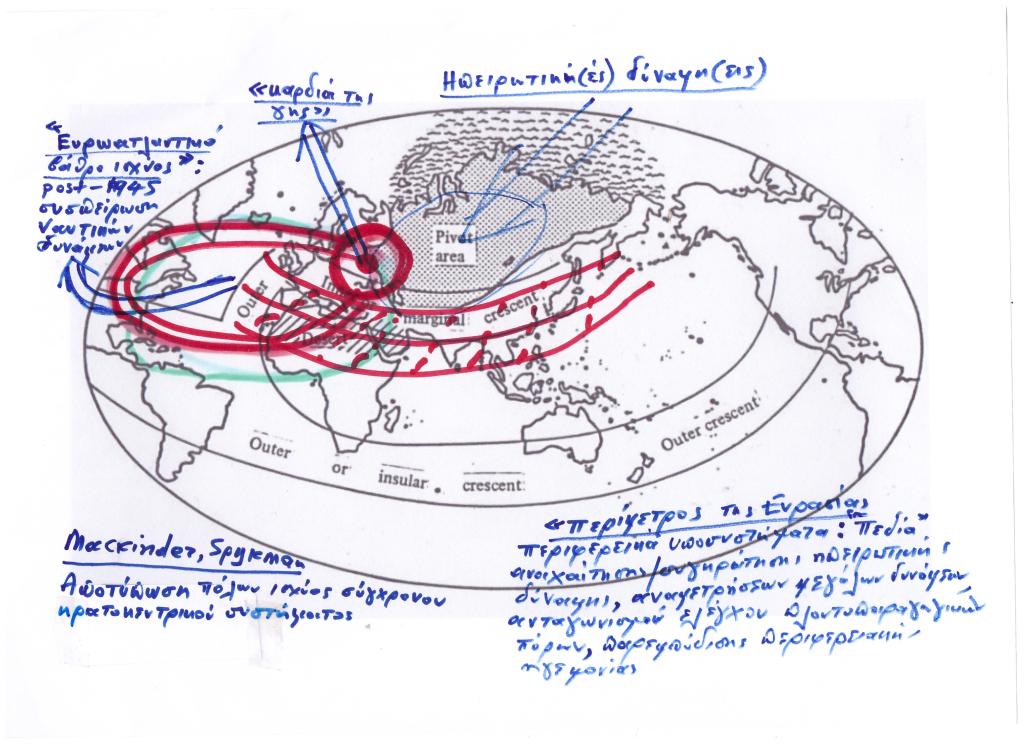 Ηπειρωτική(ές) δύναμη(εις)
«καρδιά της
γης»
«Ευρωατλαντικό
βάθρο ισχύος»:
post-1945
συσπείρωση
ναυτικών
δυνάμεων
Pivot
area
Outer
marginal crescent
Desert
Outer or insular crescent
Outer crescent
Mackinder, Spykman
Αποτύπωση πόλων ισχύος σύγχρονου
κρατοκεντρικού συστήματος
«Περίμετρος της Ευρασίας
περιφερειακά υποσυστήματα: "Πεδία"
ανοιχαίτησης/συγκράτησης ηπειρωτικής
δύναμης, αναμετρήσεων μεγάλων δυνάμεων
ανταγωνισμού ελέγχου πλουτοπαραγωγικών
πόρων, παρεμπόδισης περιφερειακής
ηγεμονίας